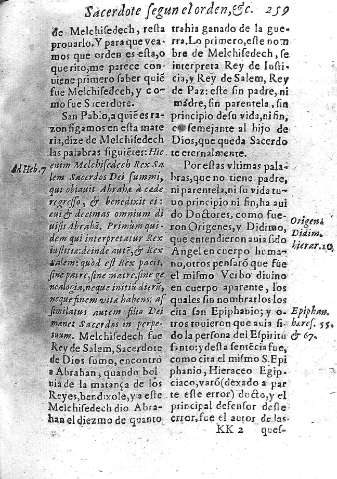 Sacerdote segun el orden, &c. 259
de Melchisedech, resta
prouarlo. Y para que vea-
mos que orden es esta, o
que rito, me parece con-
uiene primero saber quié
fue Melchisedech, y co-
mo fue Sacerdote.
San Pablo, a quié es ra-
zon sigamos en esta mate
ria, dize de Melchisedech
las palabras siguiétes: Hic
Ad Heb. 7.
enim Melchisedech Rex Sa
lem Sacerdos Dei summi,
qui obiauit Abrahæ à cæde
regresso, & benedixit ei:
cui & decimas omnium di
uisit Abrahã. Primum qui-
dem qui interpretatur Rex
iustitiæ: deinde autẽ, & Rex
Salem: quod est Rex pacis,
sine patre, sine matre, sine ge
nealogia, neque initiũ dierũ,
neque finem vitæ habens, as
similatus autem filio Dei
manet Sacerdos in perpe-
tuum. Melchisedech fue
Rey de Salem, Sacerdote
de Dios sumo, encontrò
a Abrahan, quando bol
uia de la matança de los
Reyes, bendixole, y a este
Melchisedech dio Abra-
han el diezmo de quanto
trahia ganado de la gue-
rra. Lo primero, este nom
bre de Melchisedech, se
interpreta Rey de Iusti-
cia, y Rey de Salem, Rey
de Paz: este sin padre, ni
madre, sin parentela, sin
principio de su vida, ni fin,
es semejante al hijo de
Dios, que queda Sacerdo
te eternalmente.
Por estas vltimas pala-
bras, que no tiene padre,
ni parentela, ni su vida tu-
uo principio ni fin, ha aui
do Doctores, como fue-
ron Origenes, y Didimo,
Origenis
Didim.
que entendieron auia sido
hierar. 10.
Angel en cuerpo huma-
no, otros pensarõ que fue
el mismo Verbo diuino
en cuerpo aparente, los
quales sin nombrarlos los
cita san Epiphanio; y o-
Epiphan.
tros tuuieron que auia si-
hæres. 55.
do la persona del Espiritu
& 67.
santo; y desta sentécia fue,
como cita el mismo S. Epi
phanio, Hieraceo Egip-
ciaco, varõ (dexado a par
te este error) docto, y el
principal defensor deste
error, fue el autor de las
KK 2 ques-